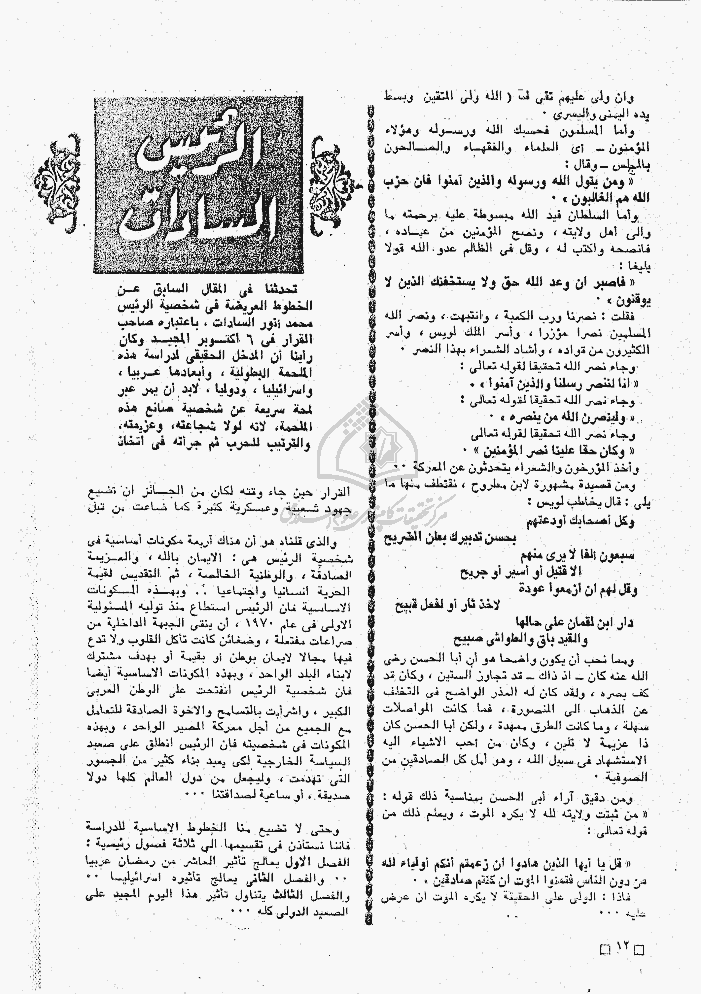 وان ولى عليهم تقى فـ ( الله ولى المتقين وبسط
يده اليمنى واليسرى ٠
وأما المسلمون فحسبك الله ورسوله وهؤلاء
المؤمنون ــ أى العلماء والفقهاء والصالحون
بالمجلس ــ وقال :
« ومن يتول الله ورسوله والذين آمنوا فان حزب
الله هم الغالبون » ٠
وأما السلطان فيد الله مبسوطة عليه برحمته ما
والى أهل ولايته ، ونصح المؤمنين من عباده ،
فانصحه واكتب له ، وقل فى الظالم عدو الله قولا
بليغا :
« فاصبر ان وعد الله حق ولا يستخفنك الذين لا
يوقنون » ٠
فقلت : نصرنا ورب الكعبة ، وانتبهت ، ونصر الله
المسلمين نصرا مؤزرا ، وأسر الملك لويس ، وأسر
الكثيرون من قواده ، وأشاد الشعراء بهذا النصر ٠
وجاء نصر الله تحقيقا لقوله تعالى :
« انا لننصر رسلنا والذين آمنوا » ٠
وجاء نصر الله تحقيقا لقوله تعالى :
« ولينصرن الله من ينصره » ٠
وجاء نصر الله تحقيقا لقوله تعالى
« وكان حقا علينا نصر المؤمنين » ٠
وأخذ المؤرخون والشعراء يتحدثون عن المعركة ٠٠
ومن قصيدة مشهورة لابن مطروح ، نقتطف منها ما
يلى : قال يخاطب لويس :
وكل أصحابك أودعتهم
بحسن تدبيرك بطن الضريح
سبعون ألفا لا يرى منهم
الا قتيل أو أسير أو جريح
وقل لهم ان أزمعوا عودة
لاخذ ثأر أو لفعل قبيح
دار ابن لقمان على حالها
والقيد باق والطواشى صبيح
ومما نحب أن يكون واضحا هو أن أبا الحسن رضى
الله عنه كان ــ اذ ذاك ــ قد تجاوز الستين ، وكان قد
كف بصره ، ولقد كان له العذر الواضح فى التخلف
عن الذهاب الى المنصورة ، فما كانت المواصلات
سهلة ، وما كانت الطرق ممهدة ، ولكن أبا الحسن كان
ذا عزيمة لا تلين ، وكان من أحب الاشياء اليه
الاستشهاد فى سبيل الله ، وهو أمل كل الصادقين من
الصوفية ٠
ومن دقيق آراء أبى الحسن بمناسبة ذلك قوله :
« من ثبتت ولايته لله لا يكره الموت ، ويعلم ذلك من
قوله تعالى :
« قل يا أيها الذين هادوا ان زعمتم أنكم أولياء لله
من دون الناس فتمنوا الموت ان كنتم صادقين » ٠
فاذا : الولى على الحقيقة لا يكره الموت ان عرض
عليه ٠٠٠
الرئيس
السادات
تحدثنا فى المقال السابق عن
الخطوط العريضة فى شخصية الرئيس
محمد أنور السادات ، باعتباره صاحب
القرار فى ٦ اكتوبر المجيد وكان
رأينا أن المدخل الحقيقى لدراسة هذه
الملحمة البطولية ، وأبعادها عربيا ،
واسرائيليا ، ودوليا ، لابد أن يمر عبر
لمحة سريعة عن شخصية صانع هذه
الملحمة، لانه لولا شجاعته، وعزيمته،
والترتيب للحرب ثم جرأته فى اتخاذ
القرار حين جاء وقته لكان من الجائز أن تضيع
جهود شعبية وعسكرية كثيرة كما ضاعت من قبل
والذى قلناه هو أن هناك أربعة مكونات أساسية فى
شخصية الرئيس هى : الايمان بالله ، والعزيمة
الصادقة ، والوطنية الخالصة ، ثم التقديس لقيمة
الحرية انسانيا واجتماعيا ٠٠ وبهذه المكونات
الاساسية فان الرئيس استطاع منذ توليه المسئولية
الاولى فى عام ١٩٧٠ ، أن ينقى الجبهة الداخلية من
صراعات مفتعلة ، وضغائن كانت تأكل القلوب ولا تدع
فيها مجالا لايمان بوطن أو بقيمة أو بهدف مشترك
لابناء البلد الواحد ، وبهذه المكونات الاساسية أيضا
فان شخصية الرئيس انفتحت على الوطن العربى
الكبير ، واشرأبت بالتسامح والاخوة الصادقة للتعامل
مع الجميع من أجل معركة المصير الواحد ، وبهذه
المكونات فى شخصيته فان الرئيس انطلق على صعيد
السياسة الخارجية لكى يعيد بناء كثير من الجسور
التى تهدمت ، وليجعل من دول العالم كلها دولا
صديقة ، أو ساعية لصداقتنا ٠٠٠
وحتى لا تضيع منا الخطوط الاساسية للدراسة
فاننا نستأذن فى تقسيمها الى ثلاثة فصول رئيسية :
الفصل الاول يعالج تأثير العاشر من رمضان عربيا
٠٠ والفصل الثانى يعالج تأثيره اسرائيليا ٠٠
والفصل الثالث يتناول تأثير هذا اليوم المجيد على
الصعيد الدولى كله ٠٠٠
١٢